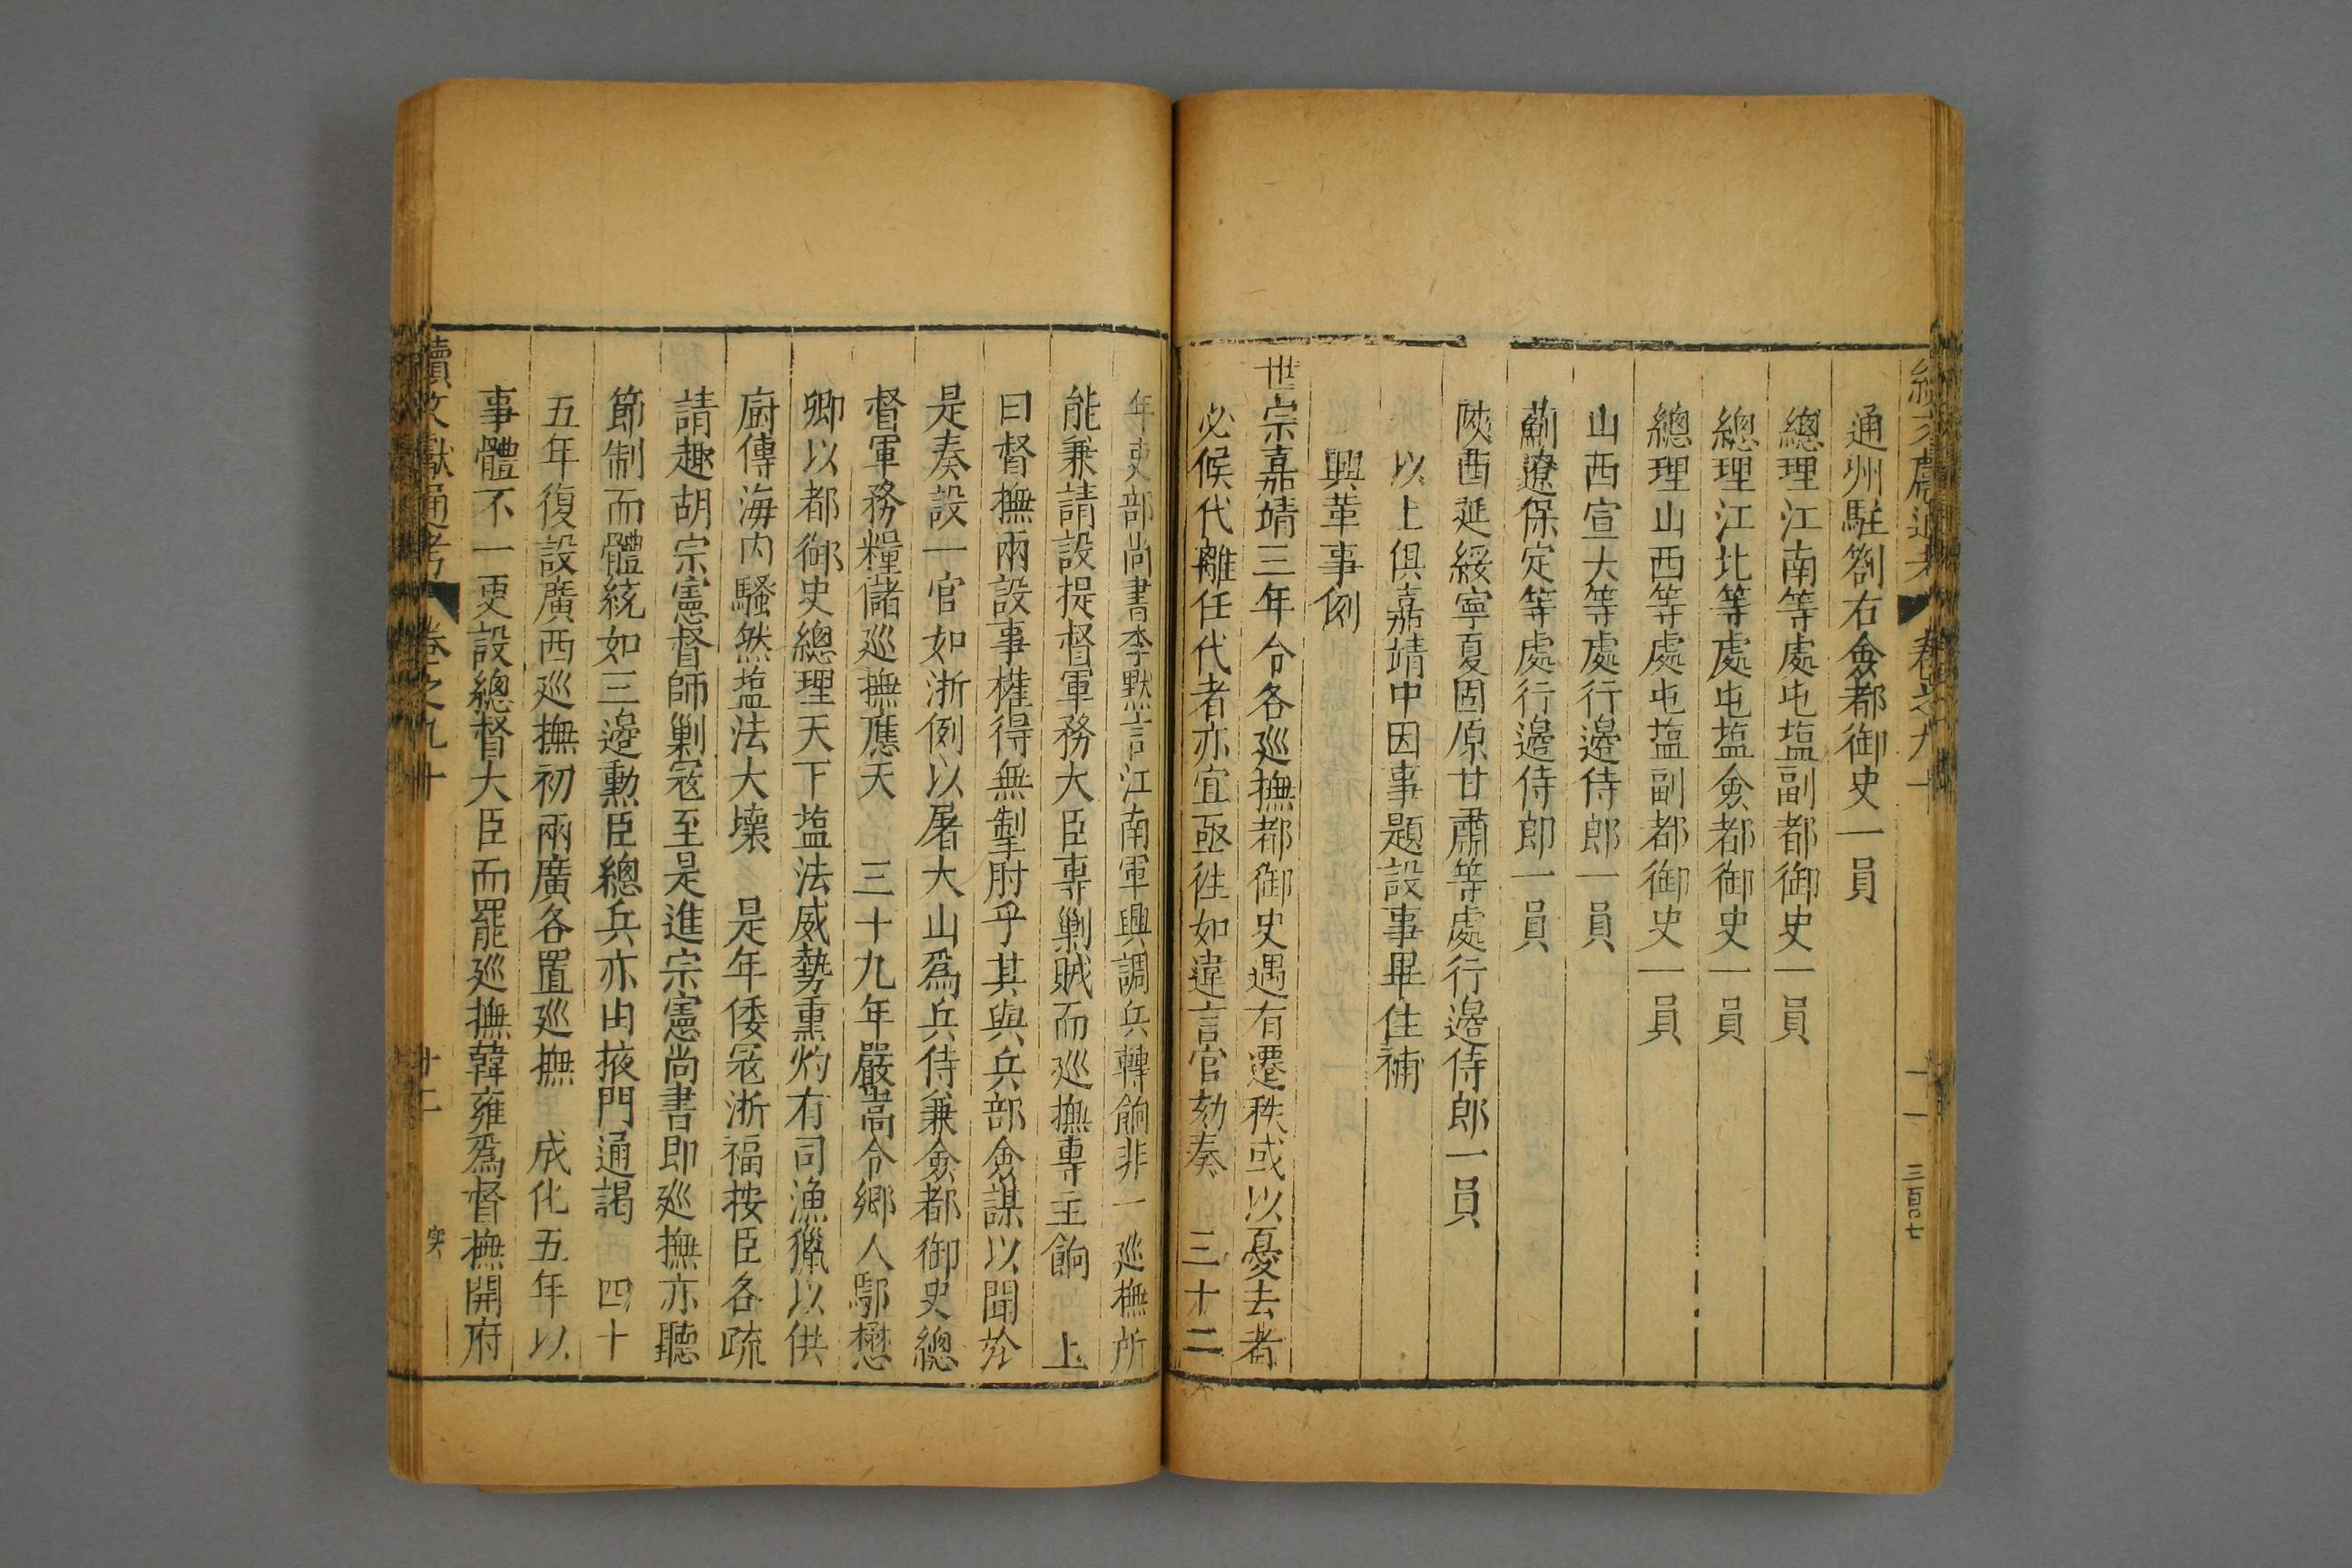 續文獻通考 卷之九十
三百七
通州駐劄右僉都御史一員
總理江南等處屯塩副都御史一員
總理江北等處屯塩僉都御史一員
總理山西等處屯塩副都御史一員
山西宣大等處行邊侍郎一員
薊遼保定等處行邊侍郎一員
陜西延綏寧夏固原甘肅等處行邊侍郎一員
以上俱嘉靖中因事題設事畢住補
興革事例
世宗嘉靖三年令各廵撫都御史遇有遷秩或以憂去者
必候代離任代者亦宜亟徃如違言官劾奏 三十二
年吏部尚書李默言江南軍興調兵轉餉非一廵撫所
能兼請設提督軍務大臣專剿賊而廵撫專主餉 上
曰督撫兩設事權得無掣肘乎其與兵部僉謀以聞於
是奏設一官如浙例以屠大山爲兵侍兼僉都御史總
督軍務糧儲廵撫應天 三十九年嚴嵩令鄉人鄢懋
卿以都御史總理天下塩法威勢熏灼有司漁獵以供
廚傳海内騷然塩法大壞 是年倭冦浙福按臣各疏
請趣胡宗憲督師剿冦至是進宗憲尚書即廵撫亦聽
節制而體統如三邊勳臣總兵亦由掖門通謁 四十
五年復設廣西廵撫初兩廣各置廵撫 成化五年以
事體不一更設總督大臣而罷廵撫韓雍爲督撫開府
續文獻通考 卷之九十 廿二